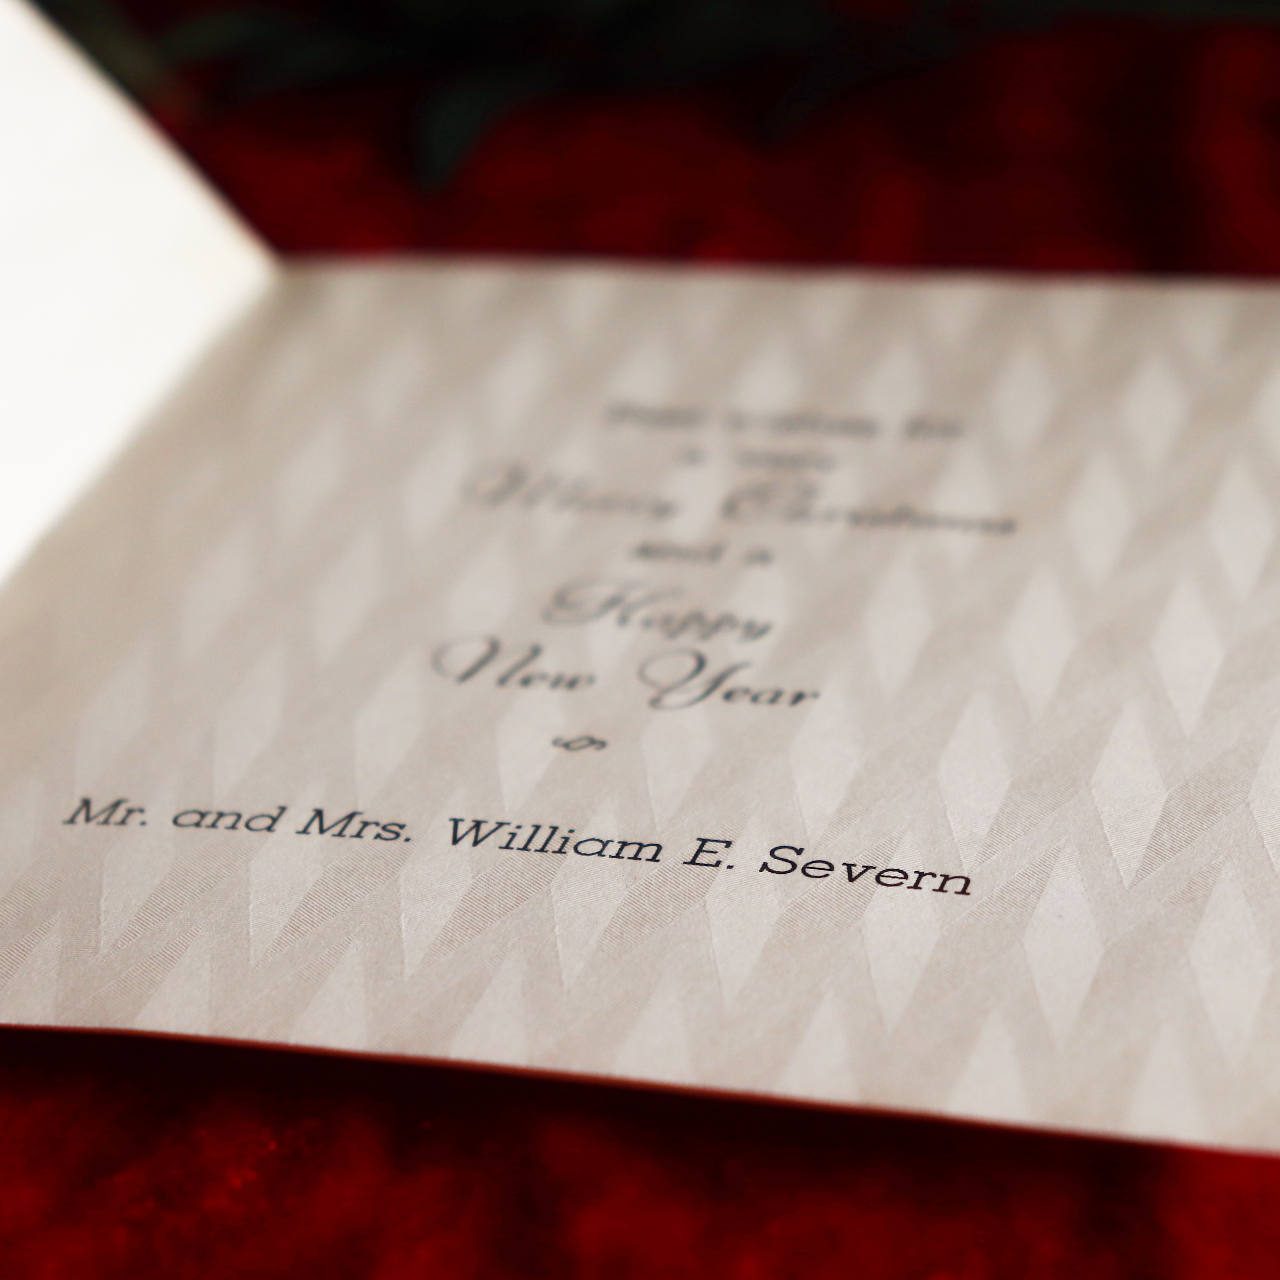 a very
Merry Christmas
and a
Happy
New Year
Mr. and Mrs. William E. Severn